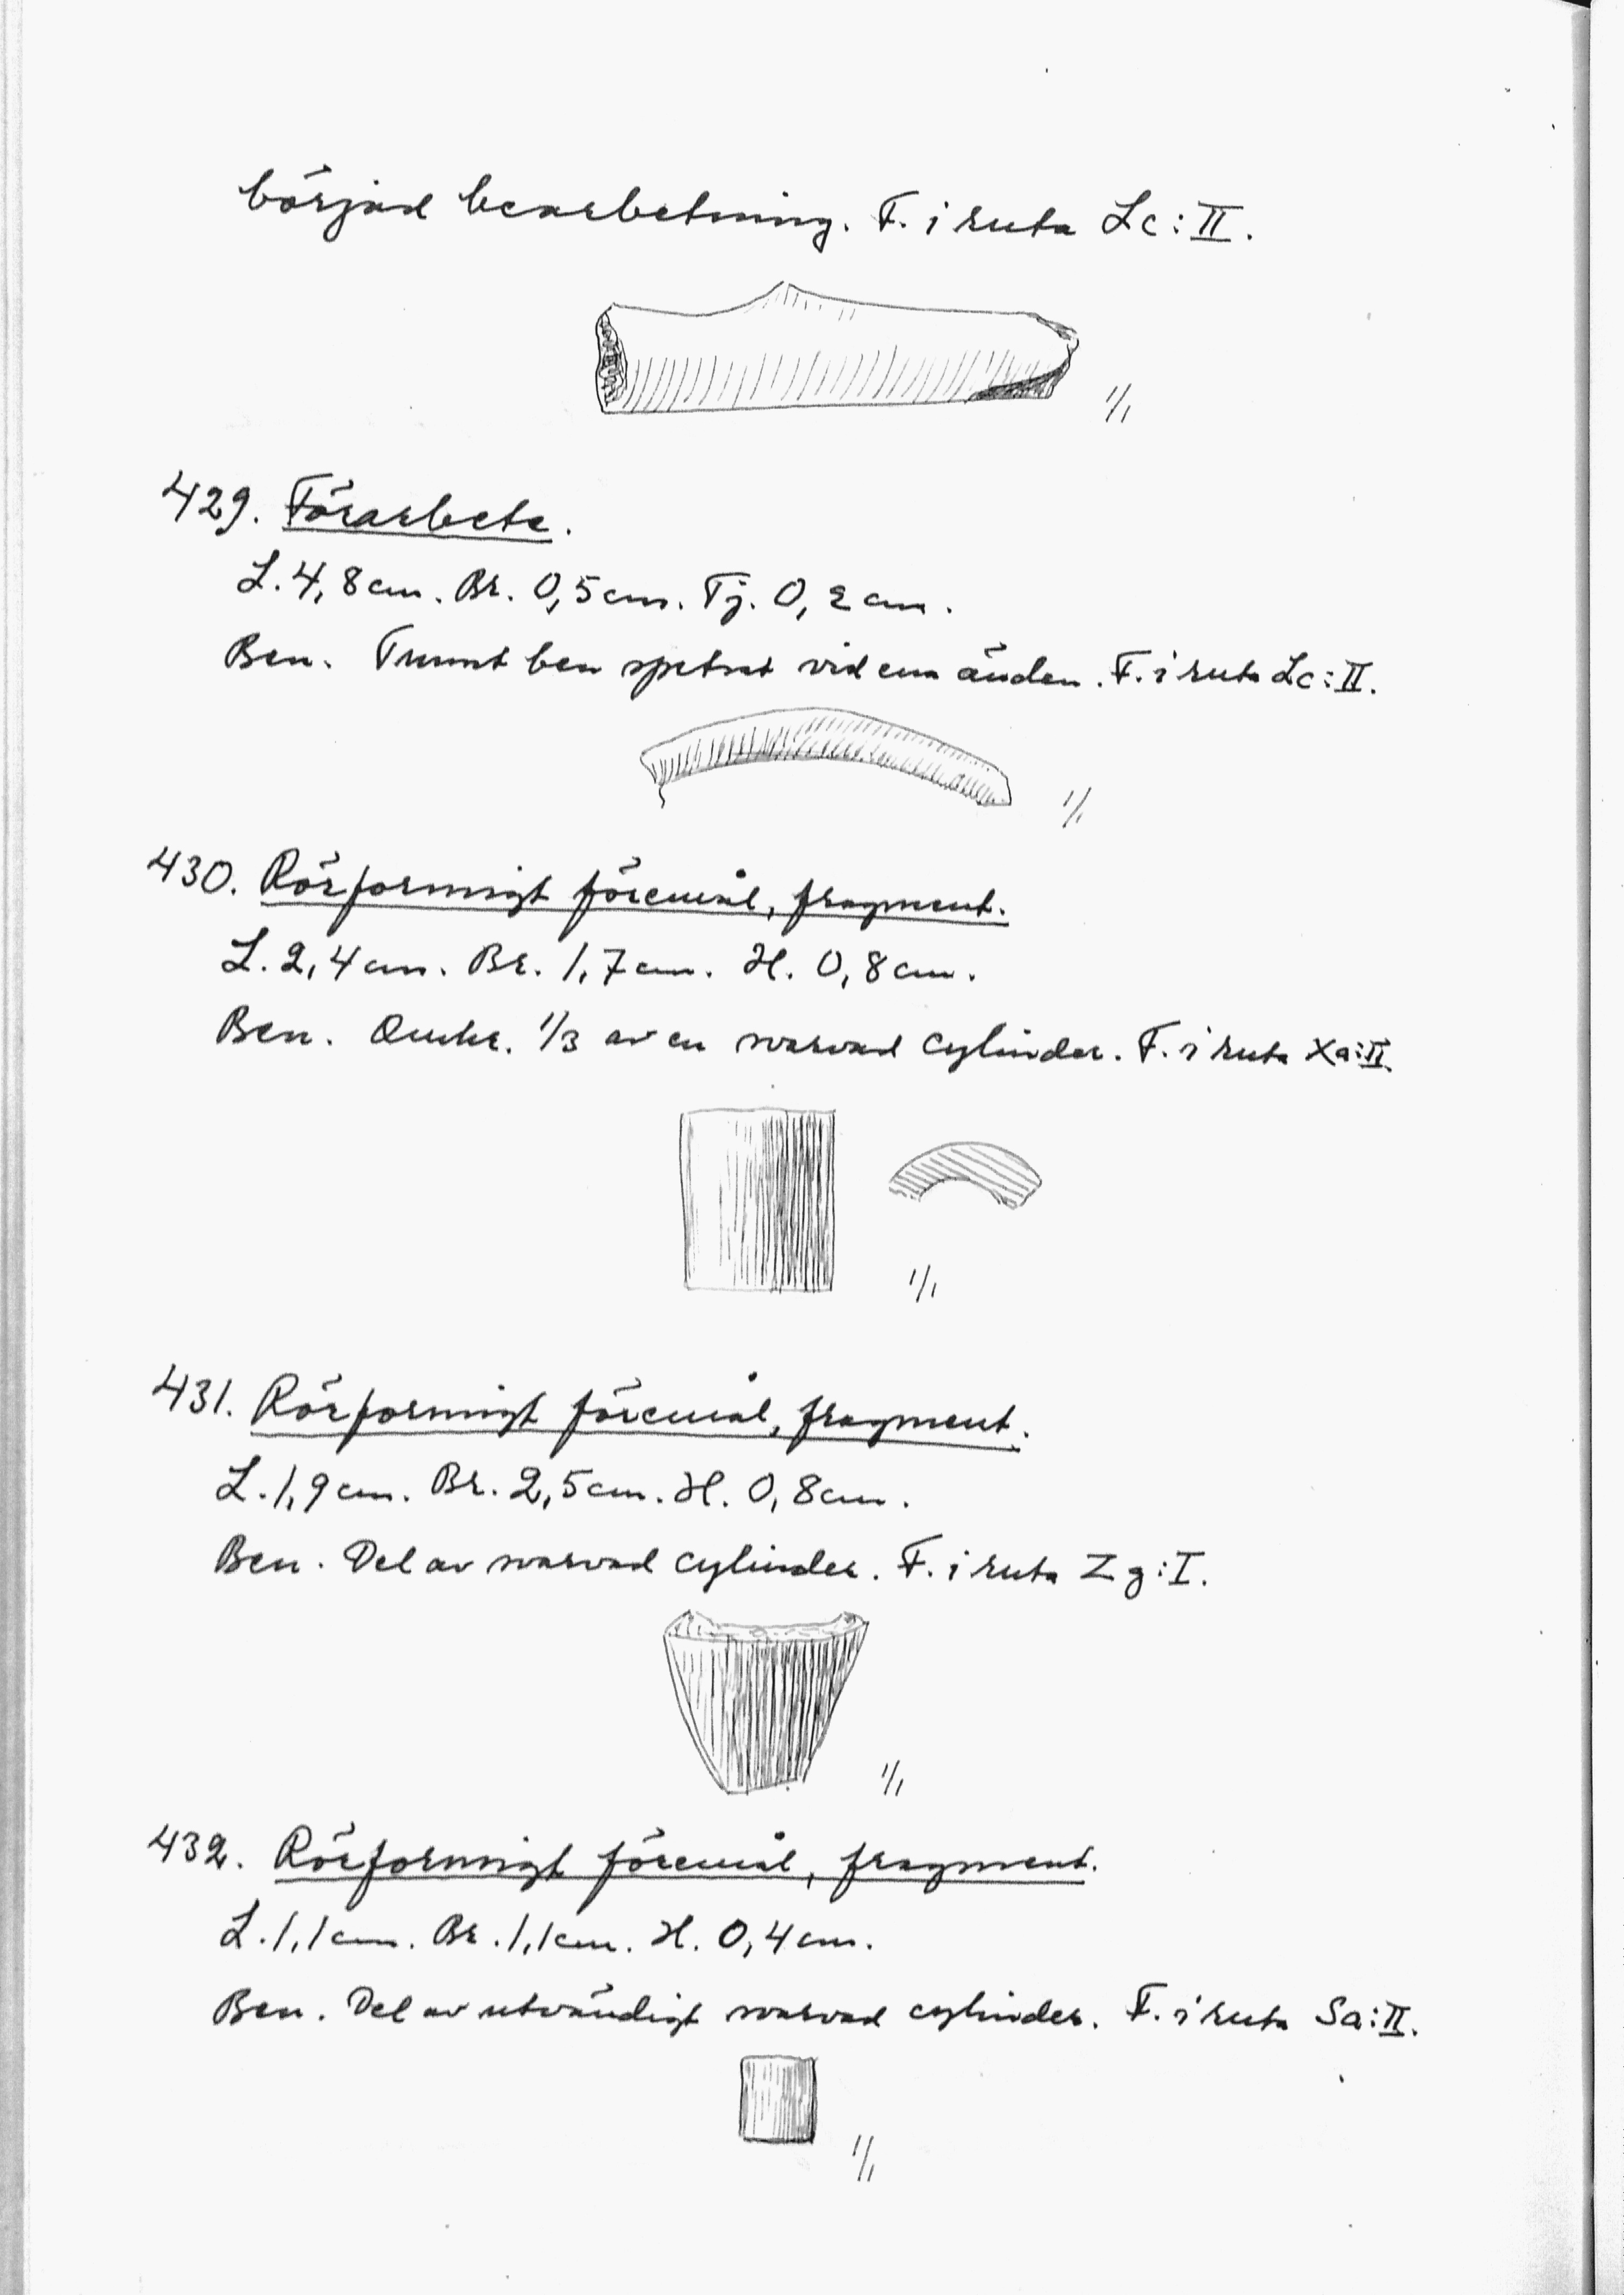 börjad bearbetning. F. i ruta Lc:II.
1/1
429. Förarbete.
L. 4,8 cm. Br. 0,5 cm. Tj. 0,2 cm.
Ben. Tunnt ben spetsat vid ena änden. F. i ruta Lc:II.
1/1
430. Rörformigt föremål, fragment.
L. 2,4 cm. Br. 1,7 cm. H. 0,8 cm.
Ben. Omkr. 1/3 av en svarvad cylinder. F. i ruta Xa:II.
1/1
431. Rörformigt föremål, fragment.
L. 1,9 cm. Br. 2,5 cm. H. 0,8 cm.
Ben. Del av svarvad cylinder. F. i ruta Zg:I.
1/1
432. Rörformigt föremål, fragment.
L. 1,1 cm. Br. 1,1 cm. H. 0,4 cm.
Ben. Del av utvändigt svarvad cylinder. F. i ruta Sa:II.
1/1